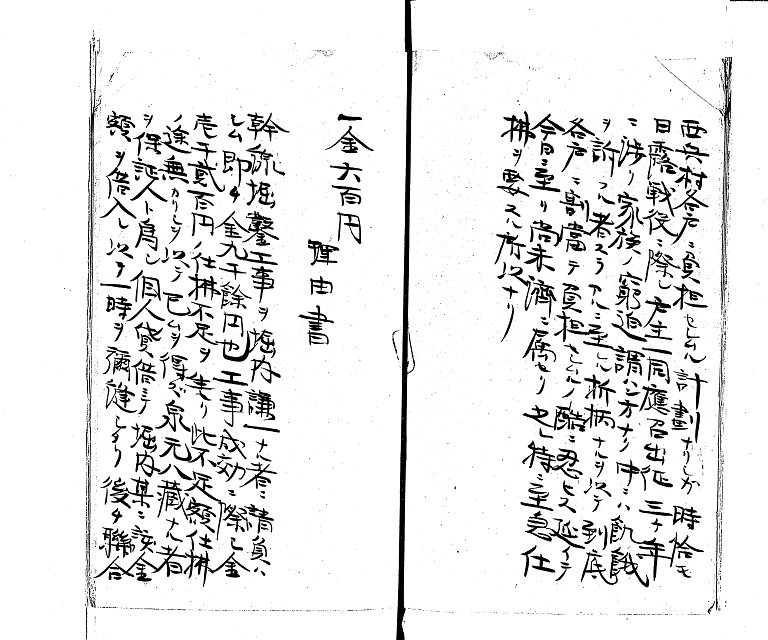 西兵村各戸ニ負担セシムル計劃ナリシガ時恰モ
日露戦役ニ際シ戸主一同應召出征三ヶ年
ニ渉リ家族ノ窮迫謂ハン方ナリ中ニハ飢餓
ヲ訴フル者スラアルニ至レル折柄ナルヲ以テ到底
各戸ニ割當テ負担セシムルノ酷ニ忍ヒス延イテ
今日ニ至リ尚未濟ニ属セリ之レ特ニ至急仕
拂ヲ要スル所以ナリ
一金六百円
理由書
幹線掘鑿工事ヲ堀内謙一ナル者ニ請負ハ
シム即チ金九千餘円也工事成効ニ際シ金
壱千貳百円ノ仕拂不足ヲ生リ此不足額仕拂
ノ途無カリシヲ以テ已ムヲ得ズ泉元八藏ナル者
ヲ保証人ト為シ個人貸借ニテ堀内某ニ該金
額ヲ借入レ以テ一時ヲ彌縫シタリ後チ聯合